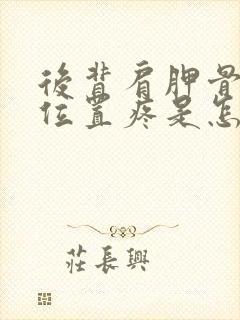 後背肩胛骨
位置疼是怎
莊長興